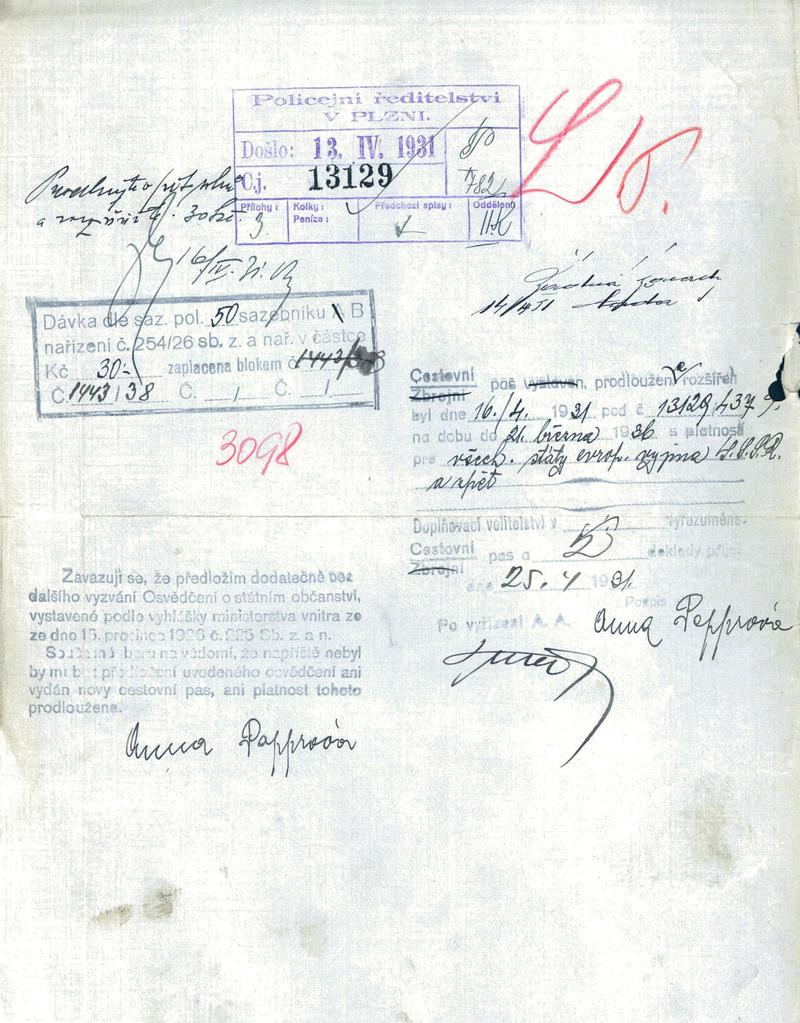 Policejní ředitelství
V PLZNI.
Došlo: 13. IV. 1931
Čj. 13129
Přílohy: 3. Kolky: Peníze: Předchozí spisy: 1 Oddělení
16/IV. 31.
Dávka dle saz. pol. 50 sazebníku B
nařízení č. 254/26 sb. z. a nař. v částce
Kč 30.- zaplacena blokem č. 1443/38
Č. 1443/38 Č. / Č. /
3098
Cestovní
Zbrojní
pas vystaven, prodloužen, rozšířen
byl dne 16./4. 1931 pod č 13129
na dobu do 21. března 1936 s platností
pro všech. státy evrop. vyjma S.S.S.R.
a zpět
Doplňovací velitelství v vyrozuměno.
Cestovní
Zbrojní
pas a doklady přijal
dne 25. 4 1931.
Podpis
Anna Pepprová
Po vyřízení A. A.
Zavazuji se, že předložím dodatečně bez
dalšího vyzvání Osvědčení o státním občanství,
vystavené podle vyhlášky ministerstva vnitra ze
ze dne 15. prosince 1926 č. 225 Sb. z. a n.
Současně beru na vědomí, že napříště nebyl
by mi bez předložení uvedeného osvědčení ani
vydán nový cestovní pas, ani platnost tohoto
prodloužena.
Anna Pepprová